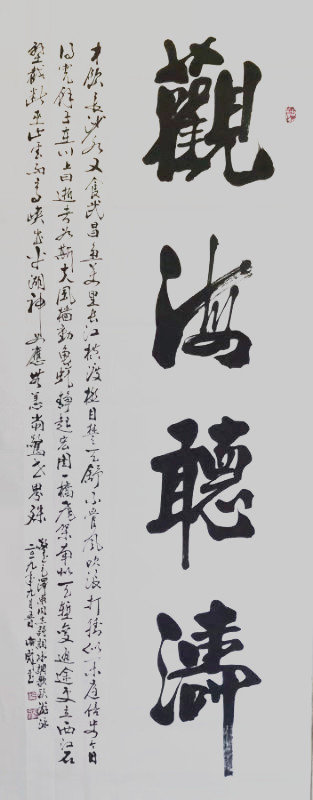 觀海聽濤
才飲長沙水又食武昌魚萬里長江橫渡極目楚天舒不管風吹浪打勝似閑庭信步今日
得寬餘子在川上曰逝者如斯夫風檣動龜蛇靜起宏圖一橋飛架南北天塹變通途更立西江石
壁截斷巫山雲雨高峽出平湖神女應無恙當驚世界殊
毛澤東同志詩詞水調歌頭游泳
二〇一九年九月